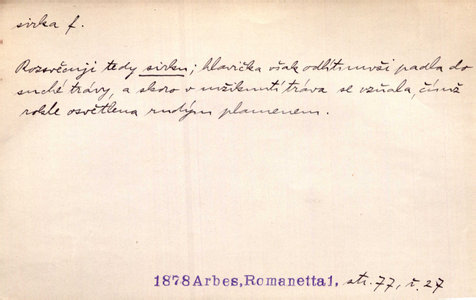 sirka f.
Rozsvěcuji tedy sirku; hlavička však odlítnuvši padla do
suché trávy, a skoro v mžiknutí tráva se vzňala, čímž
rokle osvětlena rudým plamenem.
1878 Arbes, Romanetta 1, str. 77, ř. 27